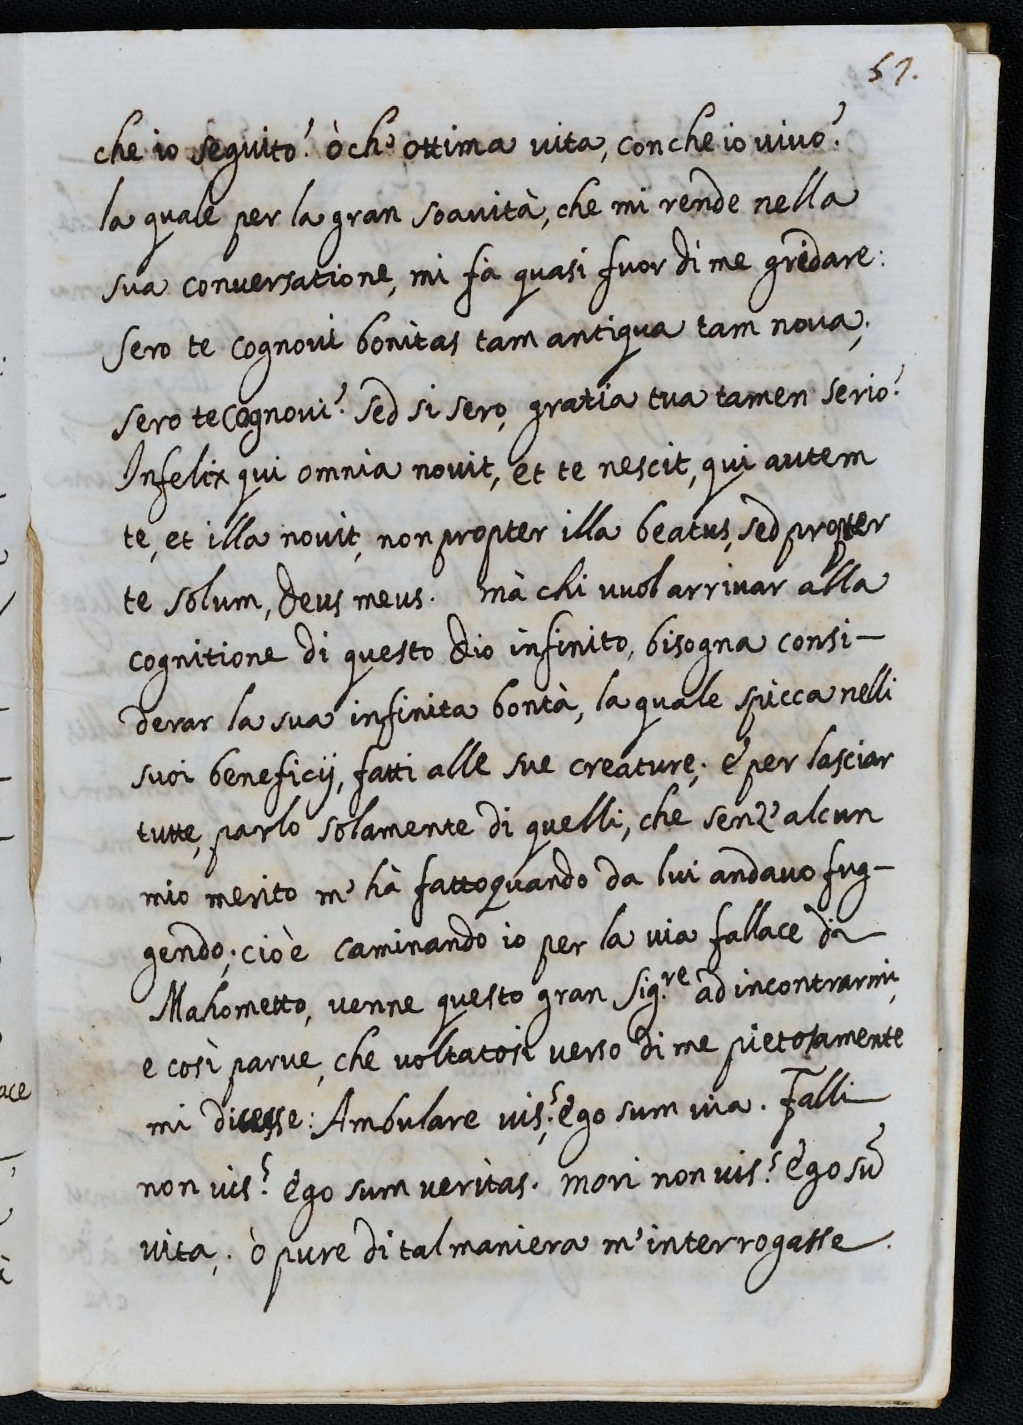 57.
che io seguito! ò ch' ottima vita, con che io vivo!
la quale per la gran soauità, che mi rende nella
sua conuersatione, mi fà quasi fuor di me gridare:
Sero te cognoui bonitas tam antiqua tam noua,
sero te cognoui! sed si sero, gratia tua tamen serio!
Infelix qui omnia nouit, et te nescit, qui autem
te, et illa nouit, non propter illa beatus, sed propter
te solum, Deus meus. mà chi vuol arriuar alla
cognitione di questo dio infinito, bisogna consi-
derar la sua infinita bontà, la quale spicca nelli
suoi beneficij, fatti alle sue creature; e per lasciar
tutte, parlo solamente di quelli, che senz' alcun
mio merito m' hà fatto quando da lui andauo fug-
gendo; cioè caminando io per la via fallace di
Mahometto, venne questo gran Sig.re ad incontrarmi,
e così parue, che voltatosi verso di me pietosamente
mi dicesse: Ambulare vis? ego sum via. Falli
non vis? ego sum veritas. mori non uis? ego sū
vita. ò pure di tal maniera m' interrogasse.
ace